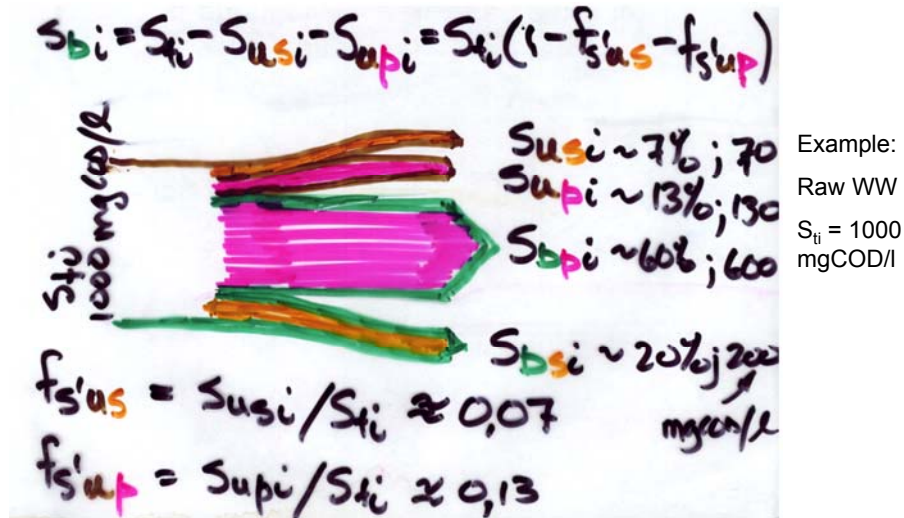 Sbi = Sti - Susi - Supi = Sti(1 - fS'us - fS'up)
Sti
1000 mgCOD/l
Susi ~ 7%; 70
Supi ~ 13%; 130
Sbpi ~ 60%; 600
Sbsi ~ 20%; 200
mgCOD/l
fS'us = Susi/Sti ≈ 0,07
fS'up = Supi/Sti ≈ 0,13
Example:
Raw WW
Sti = 1000
mgCOD/l